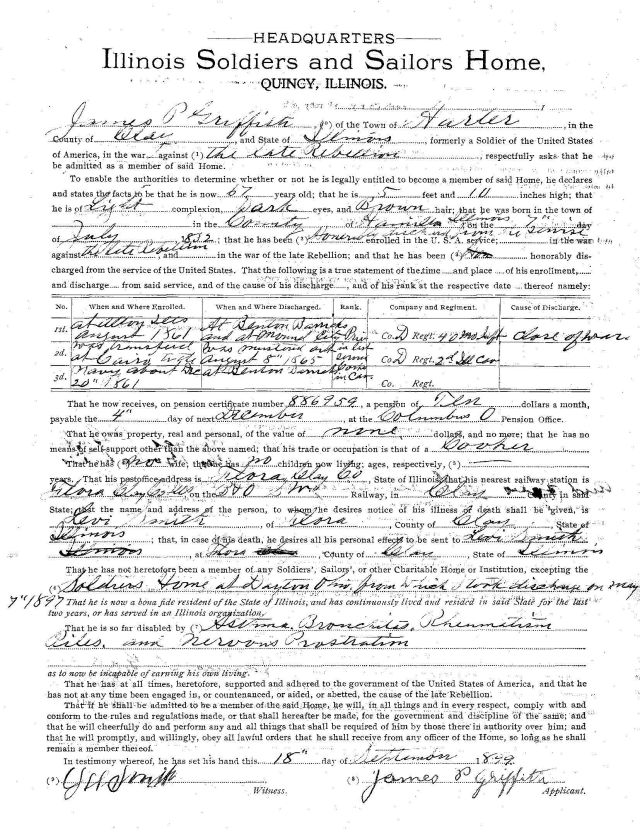 HEADQUARTERS
Illinois Soldiers and Sailors Home,
QUINCY, ILLINOIS.
James P Griffith (2) of the Town of Harter, in the
County of Clay, and State of Illinois, formerly a Soldier of the United States
of America, in the war against (1) the late Rebellion, respectfully asks that he
be admitted as a member of said Home.
To enable the authorities to determine whether or not he is legally entitled to become a member of said Home, he declares
and states the facts to be that he is now 67 years old; that he is 5 feet and 10 inches high; that
he is of Light complexion, Dark eyes, and Brown hair; that he was born in the town of
in the County of Hamilton Illinois, on the 7" day
of July 1832; that he has been enrolled in the U. S. A. service; in the war
against the late Rebellion, and in the war of the late Rebellion; and that he has been honorably dis-
charged from the service of the United States. That the following is a true statement of the time and place of his enrollment,
and discharge from said service, and of the cause of his discharge, and of his rank at the respective date thereof namely:
No. When and Where Enrolled. When and Where Discharged. Rank. Company and Regiment. Cause of Discharge.
1st. at Alton Ills August 1861 At Benton Barracks and at Mound City Co. D Regt. 40 Mo Inft Close of war
2d. was transfered at Cairo to Was mustered out August 8" 1865 Co. D Regt. 2nd Ill Cav
3d. Navy about Dec 20" 1861 at Benton Barracks in Cav Co. Regt.
That he now receives, on pension certificate number 886959, a pension of Ten dollars a month,
payable the 4" day of next December, at the Columbus O Pension Office.
That he owns property, real and personal, of the value of none dollars, and no more; that he has no
means of self-support other than the above named; that his trade or occupation is that of a
That he has (3) no wife; that he has no children now living; ages, respectively, (5)
years. That his postoffice address is Flora, Clay Co, State of Illinois; that his nearest railway station is
Flora Clay Co Ills on the Railway, in Clay County in said
State; that the name and address of the person, to whom he desires notice of his illness or death shall be given, is
Levi Smith of Flora, County of Clay, State of
Illinois; that, in case of his death, he desires all his personal effects to be sent to Levi Smith
at Flora, County of Clay, State of Illinois
That he has not heretofore been a member of any Soldiers', Sailors', or other Charitable Home or Institution, excepting the
Soldiers Home at Dayton Ohio, from which I took discharge on May
7" 1897 That he is now a bona fide resident of the State of Illinois, and has continuously lived and resided in said State for the last
two years, or has served in an Illinois organization,
That he is so far disabled by (7) Asthma, Bronchitis, Rheumatism
Piles, and Nervous Prostration
as to now be incapable of earning his own living.
That he has at all times, heretofore, supported and adhered to the government of the United States of America, and that he
has not at any time been engaged in, or countenanced, or aided, or abetted, the cause of the late Rebellion.
That if he shall be admitted to be a member of the said Home, he will, in all things and in every respect, comply with and
conform to the rules and regulations made, or that shall hereafter be made, for the government and discipline of the same; and
that he will cheerfully do and perform any and all things that shall be required of him by those there in authority over him; and
that he will promptly, and willingly, obey all lawful orders that he shall receive from any officer of the Home, so long as he shall
remain a member thereof.
In testimony whereof, he has set his hand this 18" day of September 1899
Smith James P Griffith
Witness. (8) Applicant.